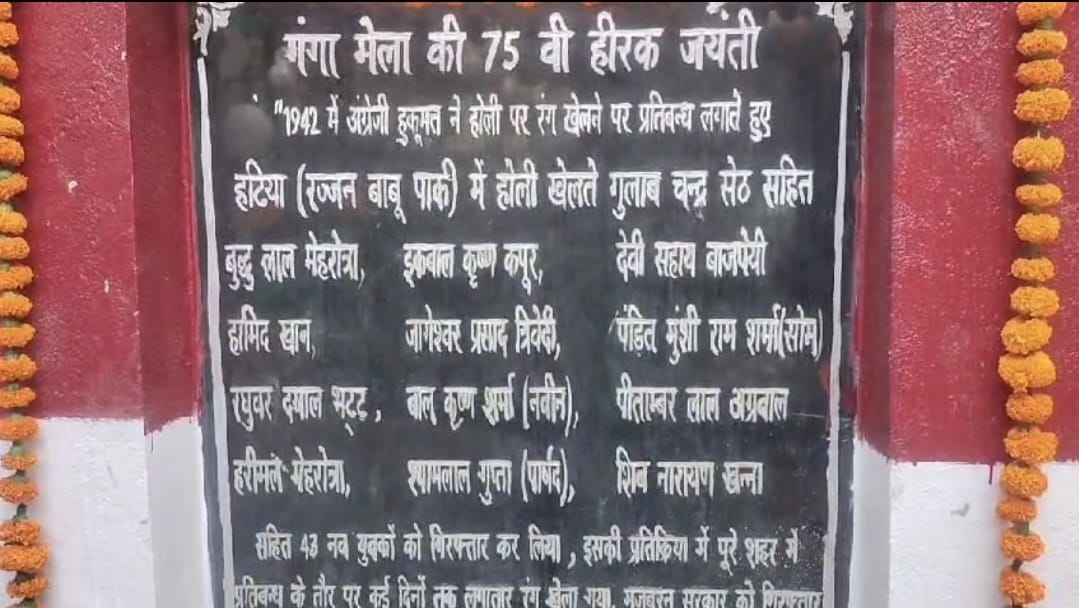 गंगा मेला की 75 वी हीरक जयंती
"1942 में अंग्रेजी हुकूमत ने होली पर रंग खेलने पर प्रतिबन्ध लगाते हुए
हटिया (रज्जन बाबू पार्क) में होली खेलते गुलाब चन्द्र सेठ सहित
बुद्धु लाल मेहरोत्रा, इकबाल कृष्ण कपूर, देवी सहाय बाजपेयी
हामिद खान, जागेश्वर प्रसाद त्रिवेदी, पंडित मुंशी राम शर्मा(सोम)
रघुवर दयाल भट्ट, बाल कृष्ण शर्मा (नवीन), पीताम्बर लाल अग्रवाल
हरीमल मेहरोत्रा, श्यामलाल गुप्ता (पार्षद), शिब नारायण खन्ना
सहित 43 नव युवकों को गिरफ्तार कर लिया, इसकी प्रतिक्रिया में पूरे शहर में
प्रतिबन्ध के तौर पर कई दिनों तक लगातार रंग खेला गया, मजबूरन सरकार को गिरफ्तार